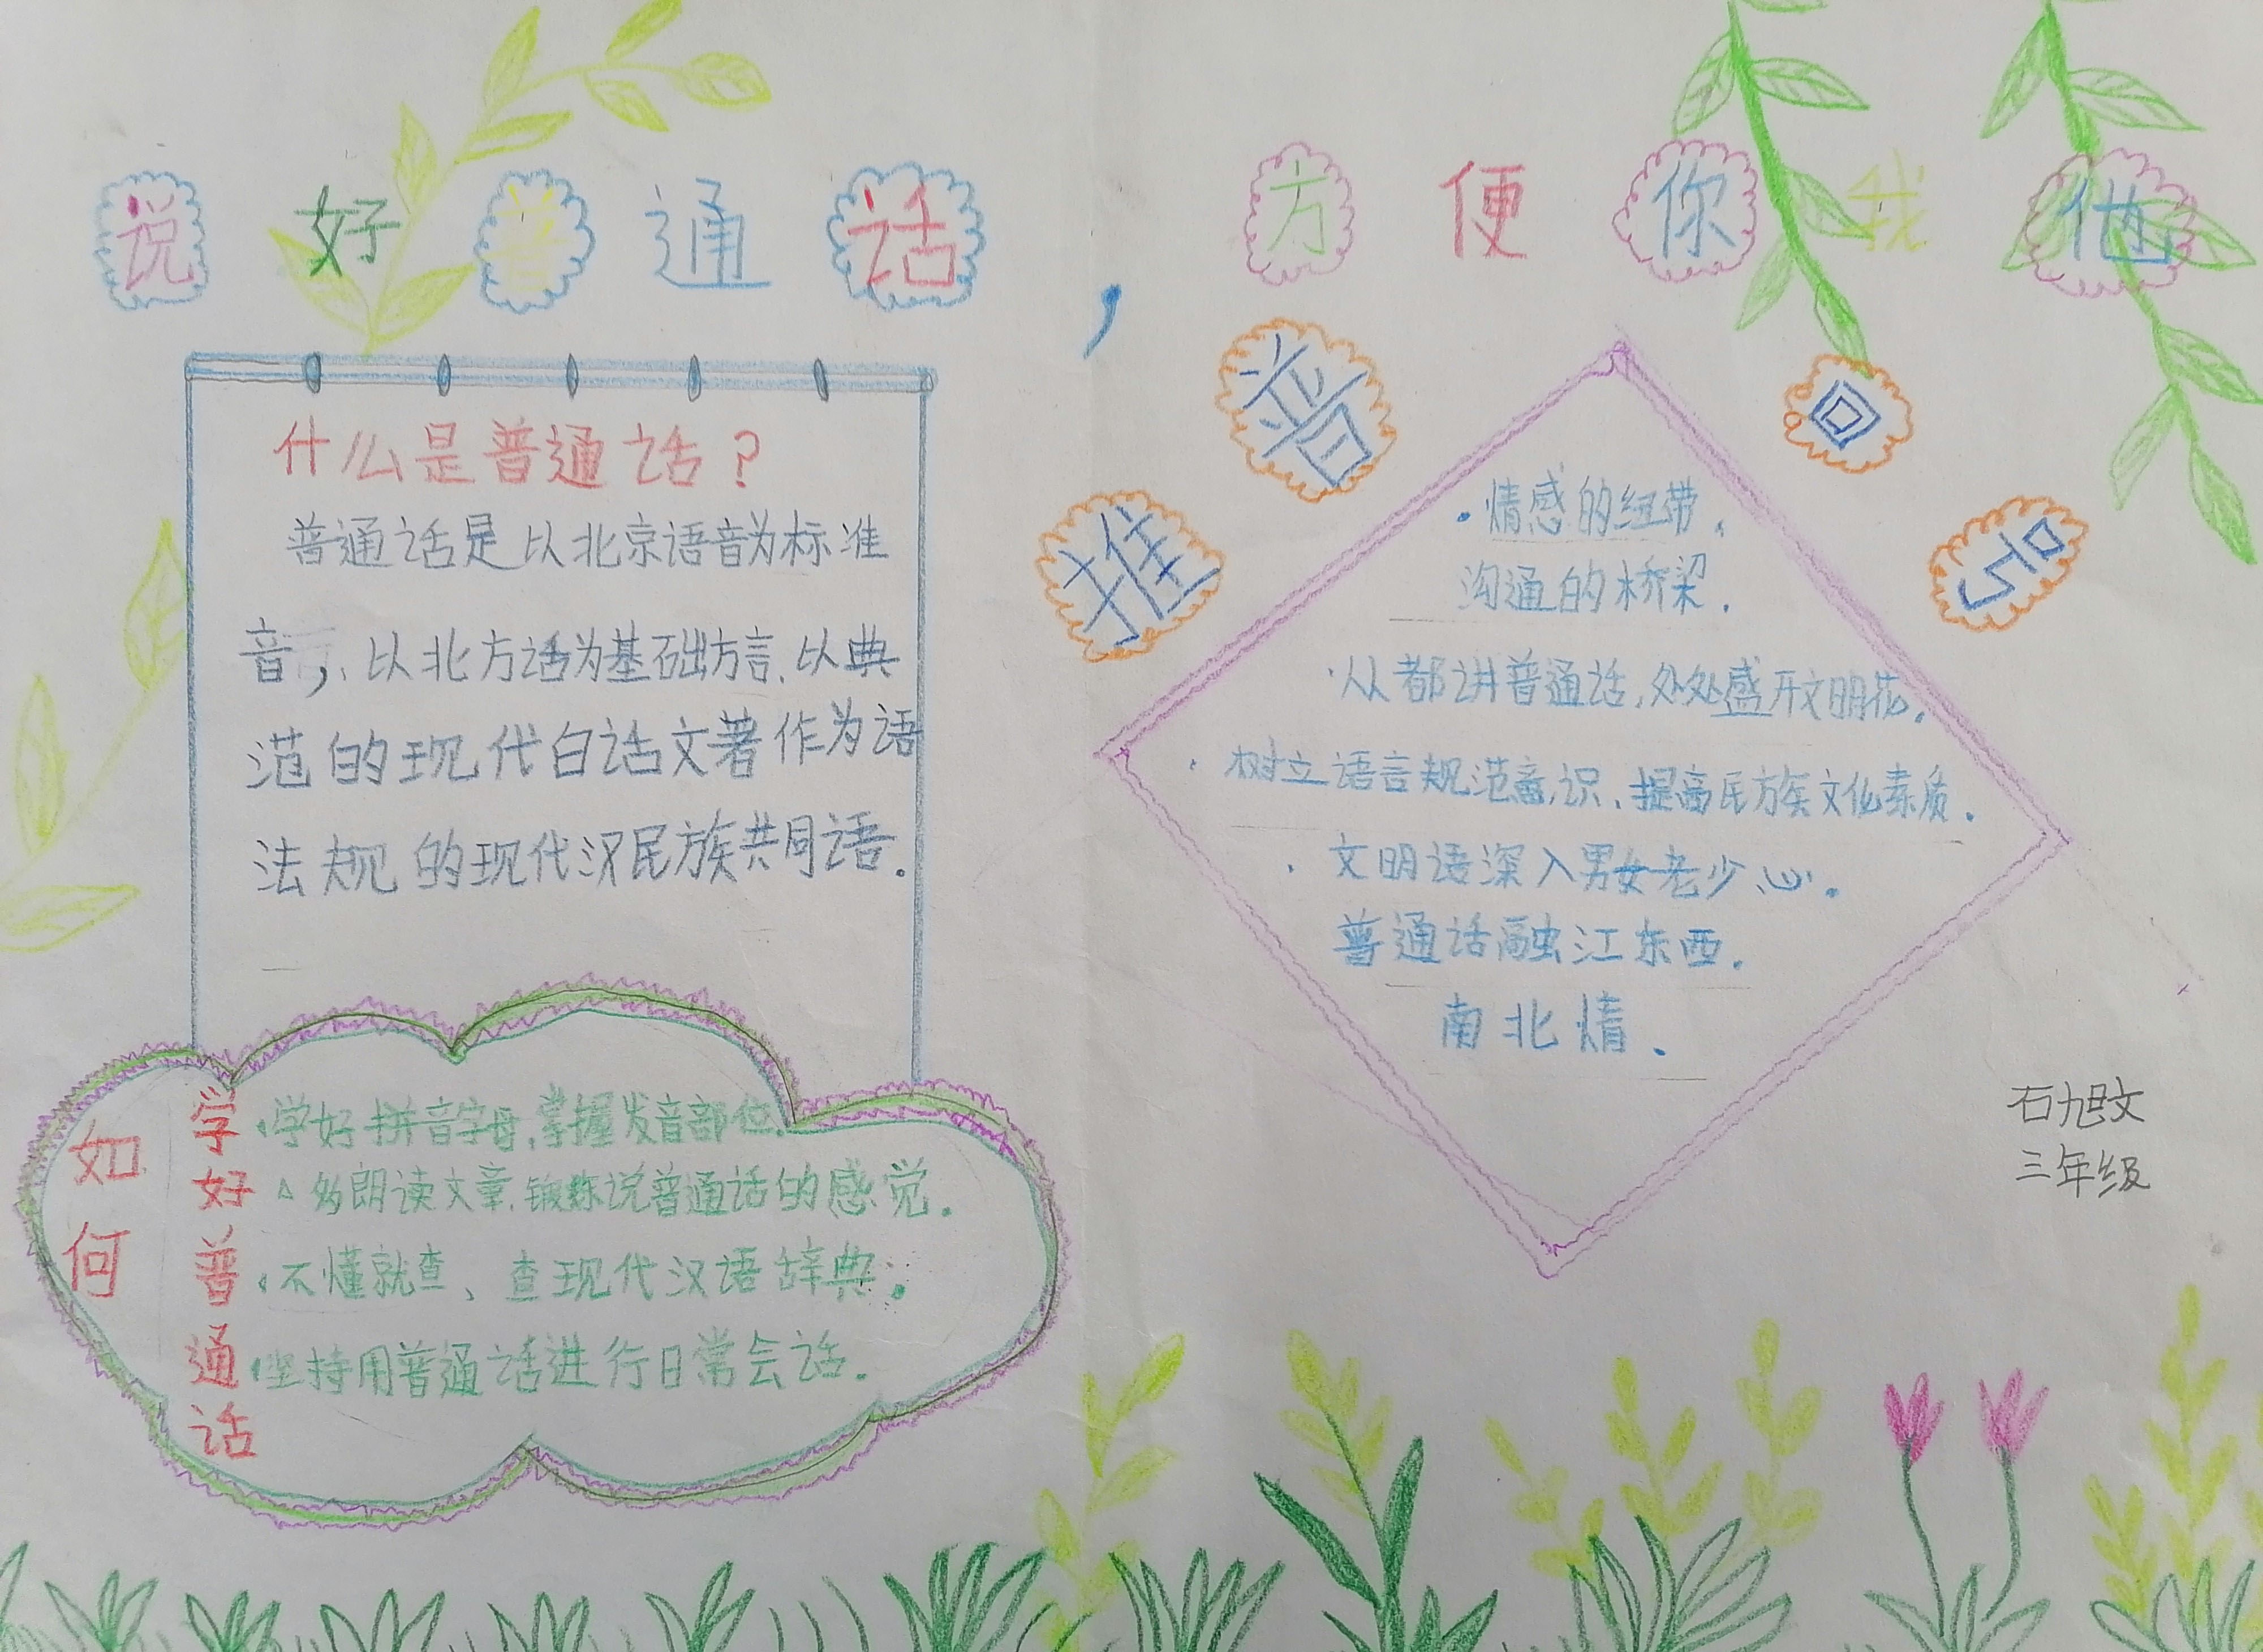 说好普通话，方便你我他
什么是普通话？
普通话是以北京语音为标准
音，以北方话为基础方言、以典
范的现代白话文著作为语
法规的现代汉民族共同语。
如何
学好普通话
·学好拼音字母,掌握发音部位.
△多朗读文章,锻炼说普通话的感觉.
·不懂就查、查现代汉语辞典.
·坚持用普通话进行日常会话.
推普口号
·情感的纽带,
沟通的桥梁.
·从都讲普通话,处处盛开文明花.
·树立语言规范意识、提高民族文化素质.
·文明语深入男女老少心.
普通话融江东西.
南北情.
石旭文
三年级